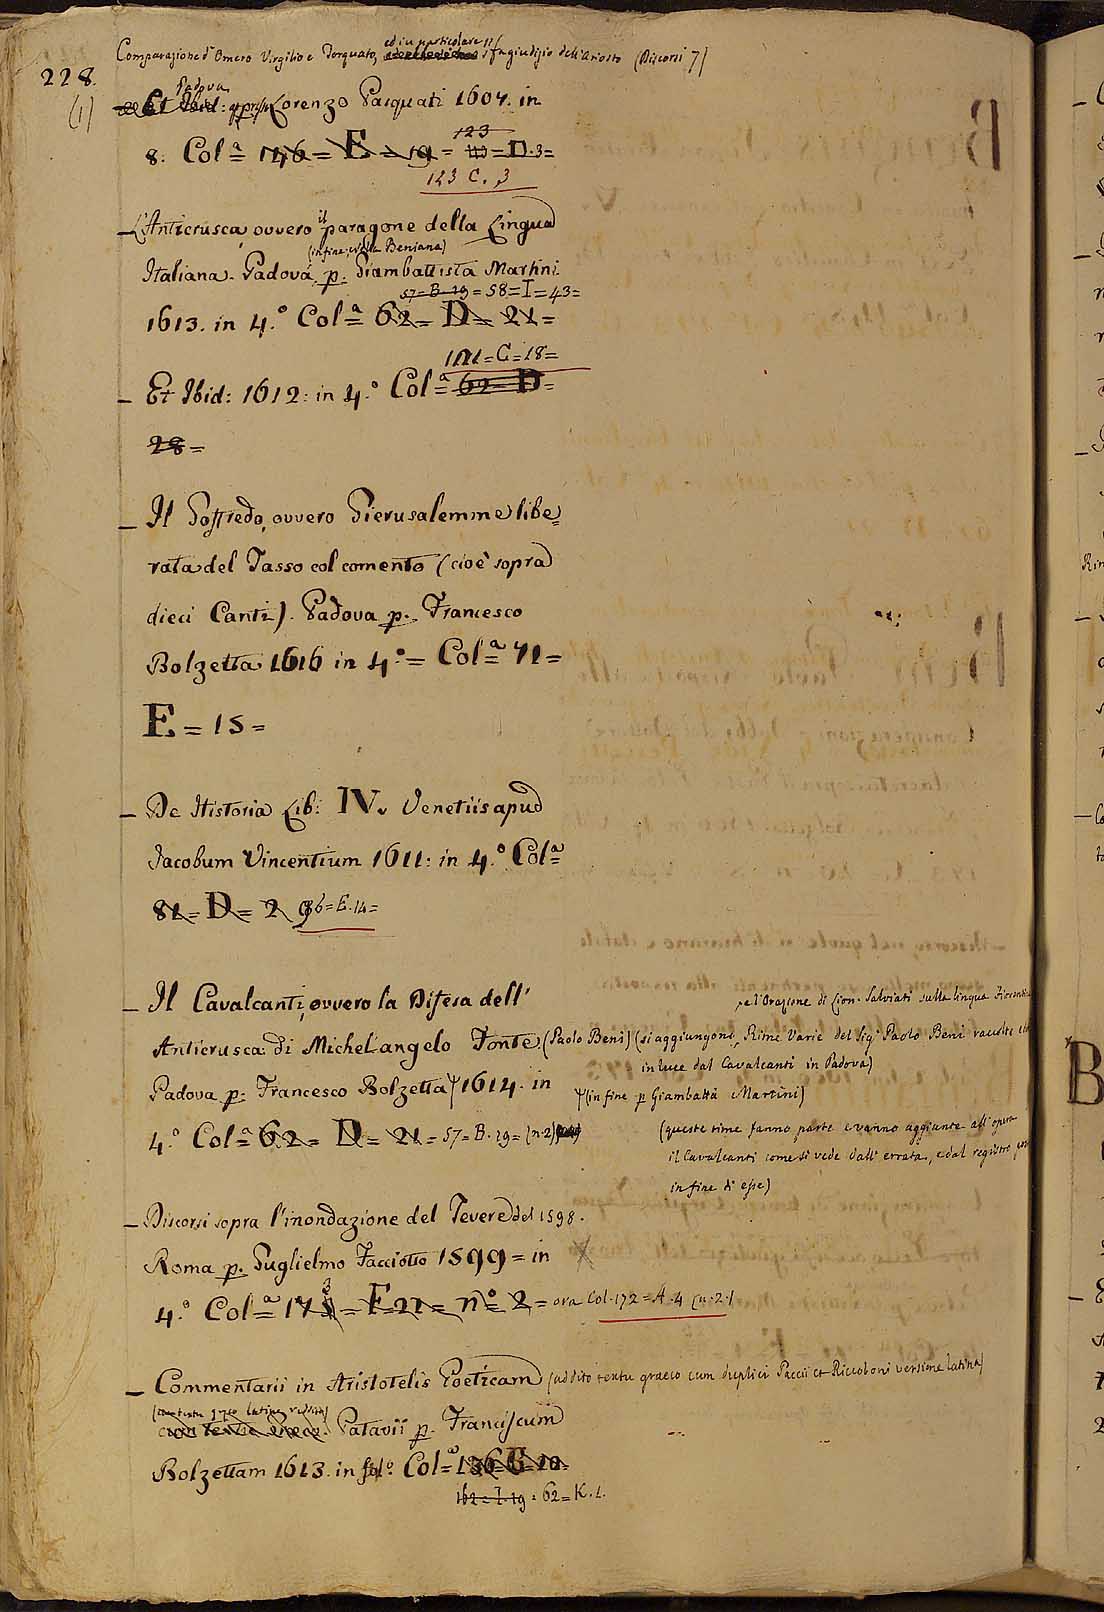 Comparazione d' Omero Virgilio e Torquato, ed in particolare si fa giudizio dell'Ariosto (Discorsi 7)
228.
(1)
Padova
Et Ibid: Lorenzo Pasquati 1607. in
123
8: Colª= 146= E = 19 = 110 = D. 3=
123 C. 3
_ L'Anticrusca, ovvero il paragone della Lingua
(in fine: nella Beniana)
Italiana. Padova, p. Giambattista Martini
57=B.19=58=I=43=
1613. in 4.º Colª= 62= D= 21=
121=C=18=
_ Et Ibid: 1612: in 4.º Colª= 62= D=
28=
_ Il Goffredo, ovvero Gierusalemme libe=
rata del Tasso col comento (cioè sopra
dieci Canti). Padova p. Francesco
Bolzetta 1616 in 4.º= Colª= 71=
E = 15=
_ De Historia Lib: IV. Venetiis apud
Jacobum Vincentium 1611: in 4.º Colª=
81= D= 2 96=E.14=
_ Il Cavalcanti, ovvero la Difesa dell'
e l'Orazione di Lion. Salviati sulla lingua Fiorentina
Anticrusca di Michelangelo Fonte (Paolo Beni) (si aggiungono, Rime Varie del Sigr Paolo Beni raccolte
in luce dal Cavalcanti in Padova)
Padova p. Francesco Bolzetta 1614. in
(in fine p Giambattª Martini)
4.º Colª= 62= D= 21= 57=B.19=(n.2)
(queste rime fanno parte e vanno aggiunte all'opera
il Cavalcanti come si vede dall' errata, e dal registro
in fine di esse)
_ Discorsi sopra l'inondazione del Tevere del 1598.
Roma p. Guglielmo Facciotto 1599= in
3
4.º Colª= 171= F 21= nº= 2= ora Col. 172=A.4 (n.2.)
_ Commentarii in Aristotelis Poeticam (addito textu graeco cum duplici Paccii et Riccoboni versione latina)
cum textu greco. Patavii p. Franciscum
Bolzettam 1613. in folº. Colª= 136= E= 10=
162=I.19= 62=K.1.